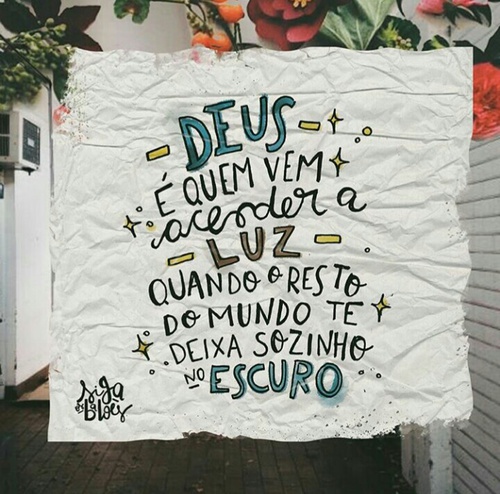 DEUS
É QUEM VEM
acender a
LUZ
QUANDO O RESTO
DO MUNDO TE
DEIXA SOZINHO
NO ESCURO
siga
os
Bloes